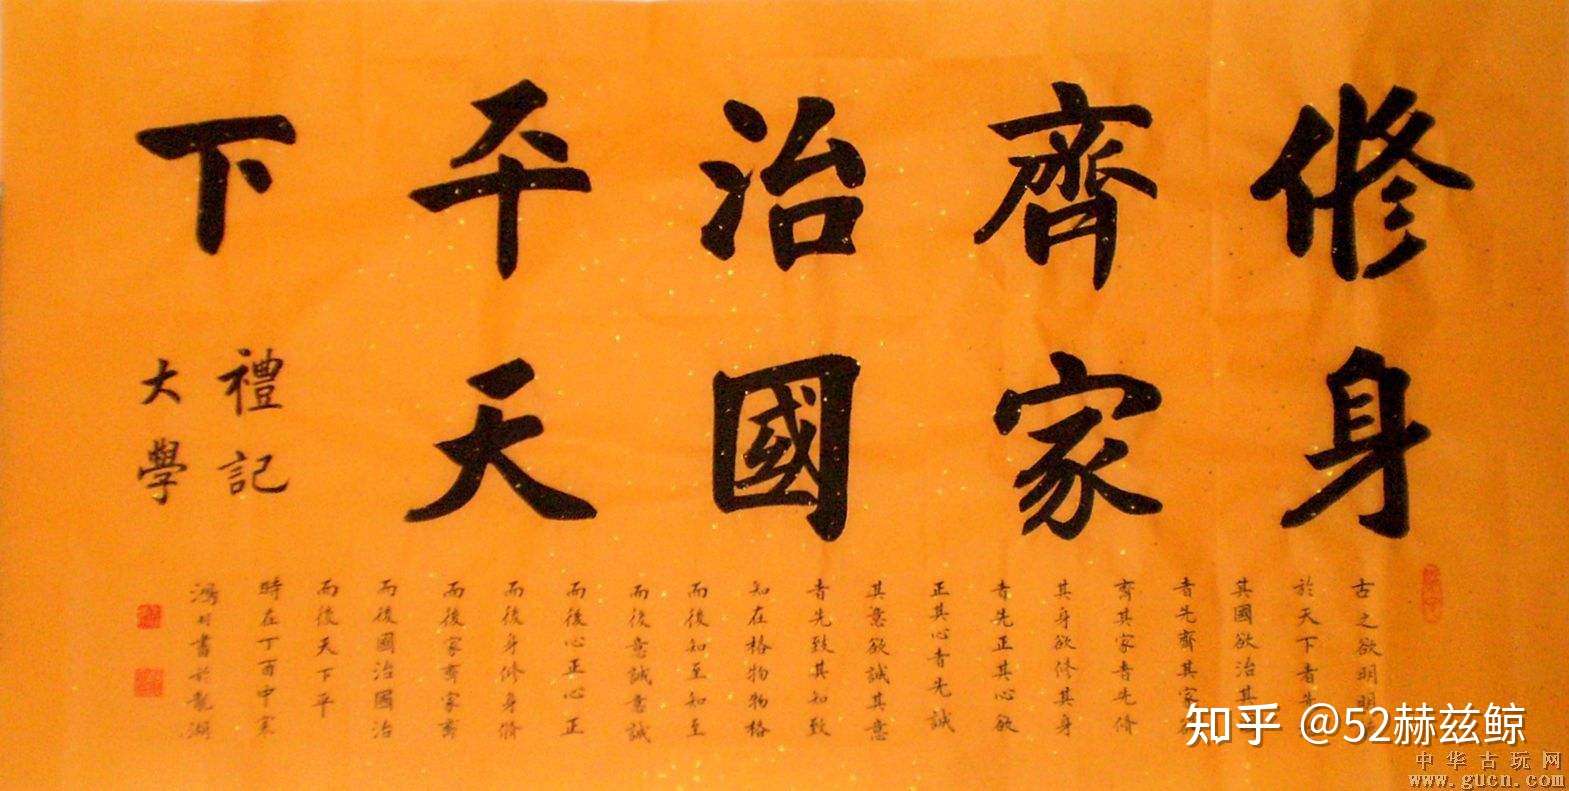 修身
齊家
治國
平天
下
禮記
大學
古之欲明明
於天下者先
其國欲治其
者先齊其家
齊其家者先脩
其身欲修其身
者先正其心欲
正其心者先誠
其意欲誠其意
者先致其知致
知在格物物格
而後知至知至
而後意誠意誠
而後心正心正
而後身修身脩
而後家齊家齊
而後國治國治
而後天下平
時在丁酉中秋
書於龍湖
知乎 @52赫兹鲸
中华古玩网
www.gucn.com